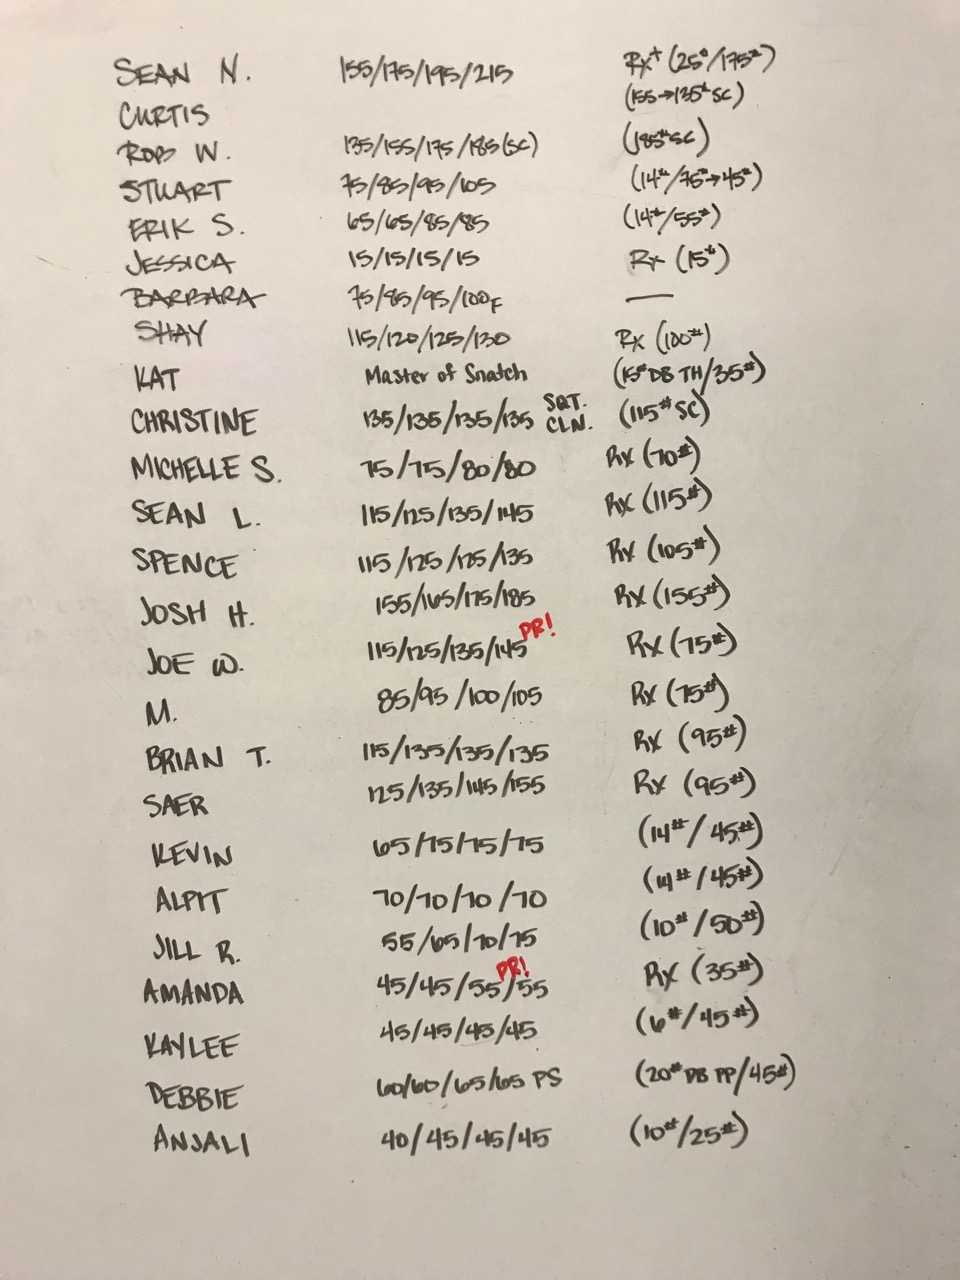 SEAN N. 155/175/195/215 Rx+ (25#/175#)
CURTIS (155→135# SC)
ROB W. 135/155/175/185(SC) (185# SC)
STUART 75/85/95/105 (14#/75#→45#)
ERIK S. 65/65/85/85 (14#/55#)
JESSICA 15/15/15/15 Rx (15#)
BARBARA 75/85/95/100F —
SHAY 115/120/125/130 Rx (100#)
KAT Master of Snatch (15# DB TH/35#)
CHRISTINE 135/135/135/135 SQT. CLN. (115# SC)
MICHELLE S. 75/75/80/80 Rx (70#)
SEAN L. 115/125/135/145 Rx (115#)
SPENCE 115/125/125/135 Rx (105#)
JOSH H. 155/165/175/185 Rx (155#)
JOE W. 115/125/135/145 PR! Rx (75#)
M. 85/95/100/105 Rx (75#)
BRIAN T. 115/135/135/135 Rx (95#)
SAER 125/135/145/155 Rx (95#)
KEVIN 65/75/75/75 (14#/45#)
ALPIT 70/70/70/70 (14#/45#)
JILL R. 55/65/70/75 (10#/50#)
AMANDA 45/45/55/55 PR! Rx (35#)
KAYLEE 45/45/45/45 (6#/45#)
DEBBIE 60/60/65/65 PS (20# DB PP/45#)
ANJALI 40/45/45/45 (10#/25#)